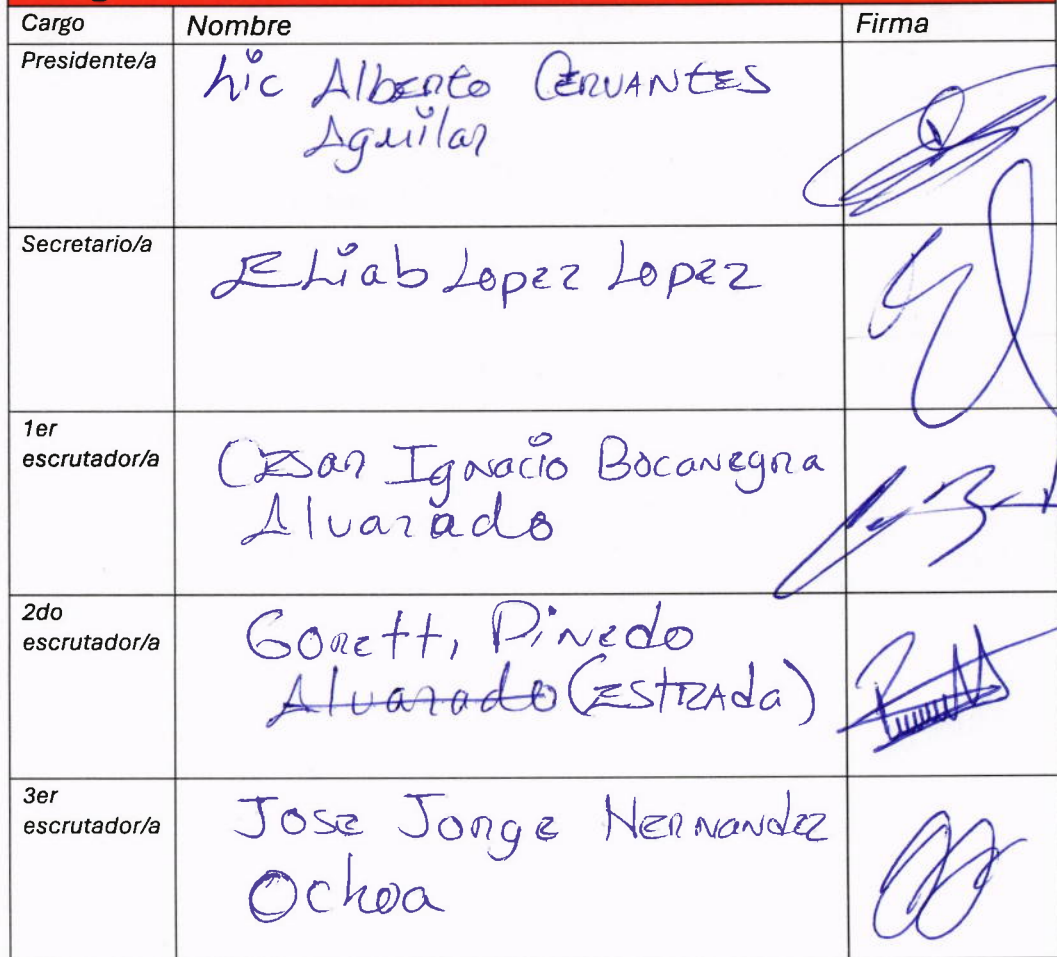 Cargo Nombre Firma
Presidente/a
Lic Alberto CERVANTES
Aguilar
Secretario/a
Eliab Lopez Lopez
1er
escrutador/a
Cesar Ignacio Bocanegra
Alvarado
2do
escrutador/a
Goretti Pinedo
Alvarado (Estrada)
3er
escrutador/a
Jose Jorge Hernandez
Ochoa